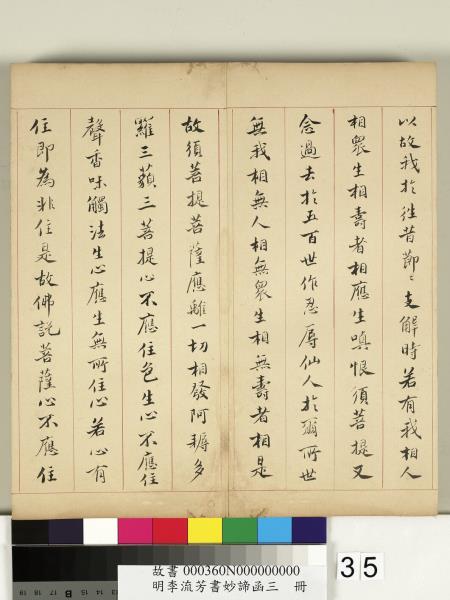 以故我於徃昔節〻支解時若有我相人
相衆生相壽者相應生嗔恨須菩提又
念過去於五百世作忍辱仙人於爾所世
無我相無人相無衆生相無壽者相是
故須菩提菩薩應離一切相發阿耨多
羅三藐三菩提心不應住色生心不應住
聲香味觸法生心應生無所住心若心有
住即為非住是故佛説菩薩心不應住
故書 000360N000000000
明李流芳書妙諦函三 冊
35